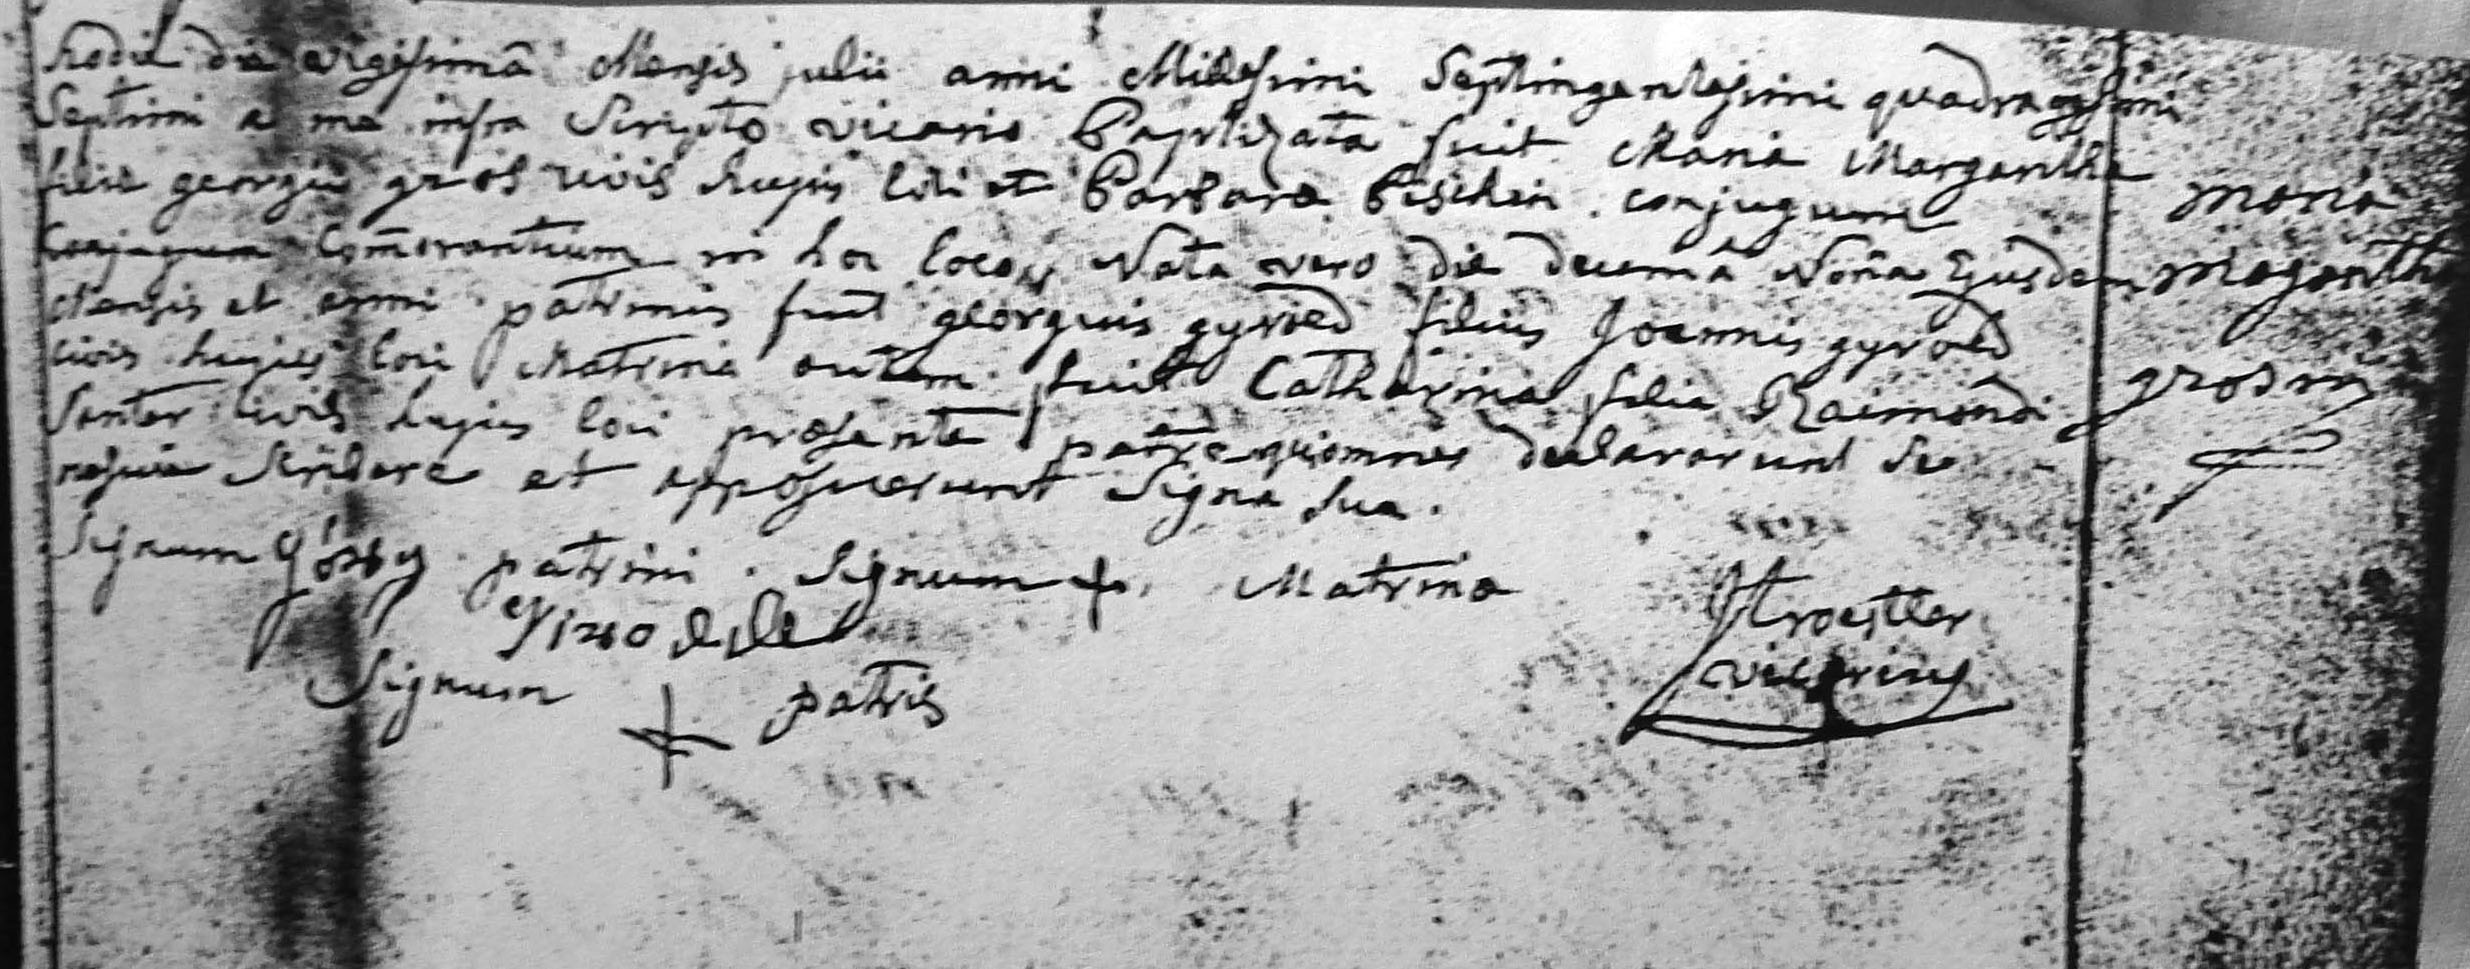 hodie die vigesimâ Mensis julii anni Millesimi Septingentesimi quadragesimi
Septimi a me infra Scripto vicario Baptizata fuit Maria Margaritha
filia georgii gros civis hujus loci et Barbara conjugum
Conjugum Com̄orantium in hoc loco, Nata vero die decimâ Nonâ Ejusdem
Mensis et anni patrinus fuit georgius gyroed filius Joannis gyroed
civis hujus loci Matrina autem fuit Catharina filia Raimondi
Senter civis hujus loci presente patre qui omnes declararunt se
nescire scribere et apposuerunt Signa sua.
Maria
Magaritha
grosin
Signum görg patrini. Signum +. Matrina
Signum + patris
Troestler
vicarius